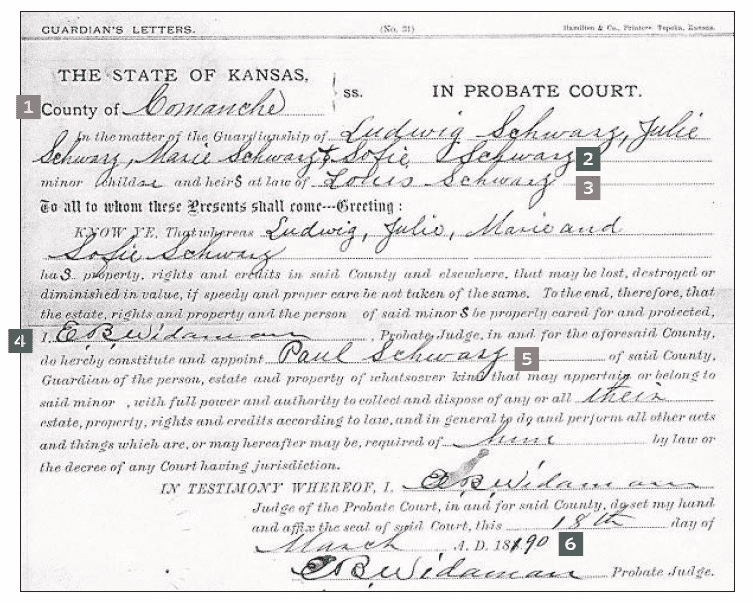 GUARDIAN'S LETTERS. (No. 31) Hamilton & Co., Printers, Topeka, Kansas.
THE STATE OF KANSAS,
ss. IN PROBATE COURT.
1 County of Comanche
In the matter of the Guardianship of Ludwig Schwarz, Julie
Schwarz, Marie Schwarz & Sofie Schwarz 2
minor children and heirs at law of Louis Schwarz 3
To all to whom these Presents shall come---Greeting:
KNOW YE, That whereas Ludwig, Julie, Marie and
Sofie Schwarz
has property, rights and credits in said County and elsewhere, that may be lost, destroyed or
diminished in value, if speedy and proper care be not taken of the same. To the end, therefore, that
the estate, rights and property and the person of said minors be properly cared for and protected,
4 I, E.B. Widaman, Probate Judge, in and for the aforesaid County,
do hereby constitute and appoint Paul Schwarz 5 of said County,
Guardian of the person, estate and property of whatsoever kind that may appertain or belong to
said minor , with full power and authority to collect and dispose of any or all their
estate, property, rights and credits according to law, and in general to do and perform all other acts
and things which are, or may hereafter may be, required of him by law or
the decree of any Court having jurisdiction.
IN TESTIMONY WHEREOF, I, E.B. Widaman
Judge of the Probate Court, in and for said County, do set my hand
and affix the seal of said Court, this 18th day of
March A. D. 1890 6
E.B. Widaman Probate Judge.